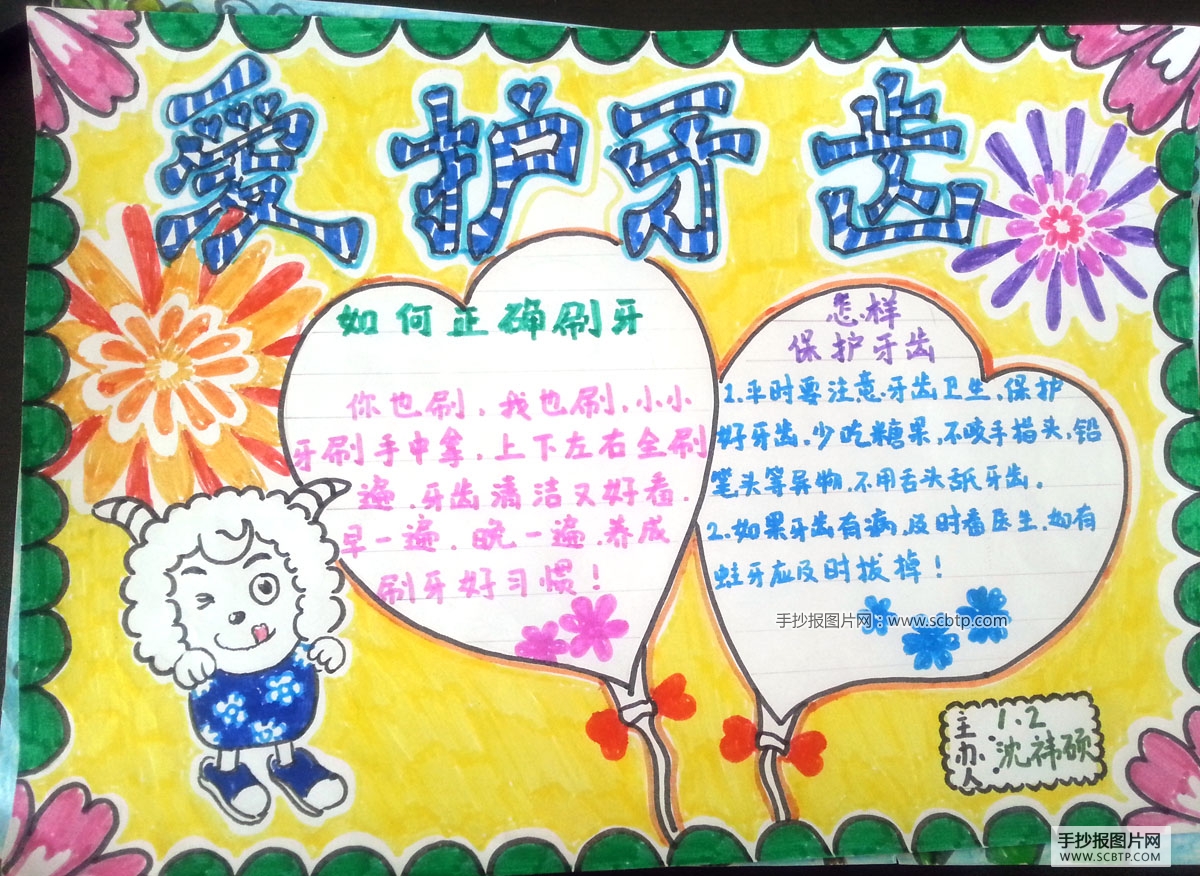 爱护牙齿
如何正确刷牙
你也刷，我也刷，小小
牙刷手中拿，上下左右全刷
遍，牙齿清洁又好看．
早一遍，晚一遍，养成
刷牙好习惯！
怎样
保护牙齿
1.平时要注意牙齿卫生，保护
好牙齿，少吃糖果，不咬手指头，铅
笔头等异物，不用舌头舐牙齿。
2.如果牙齿有病，及时看医生，如有
蛀牙应及时拔掉！
手抄报图片网：www.scbtp.com
主办人：
1.2
沈祎硕
手抄报图片网
WWW.SCBTP.COM